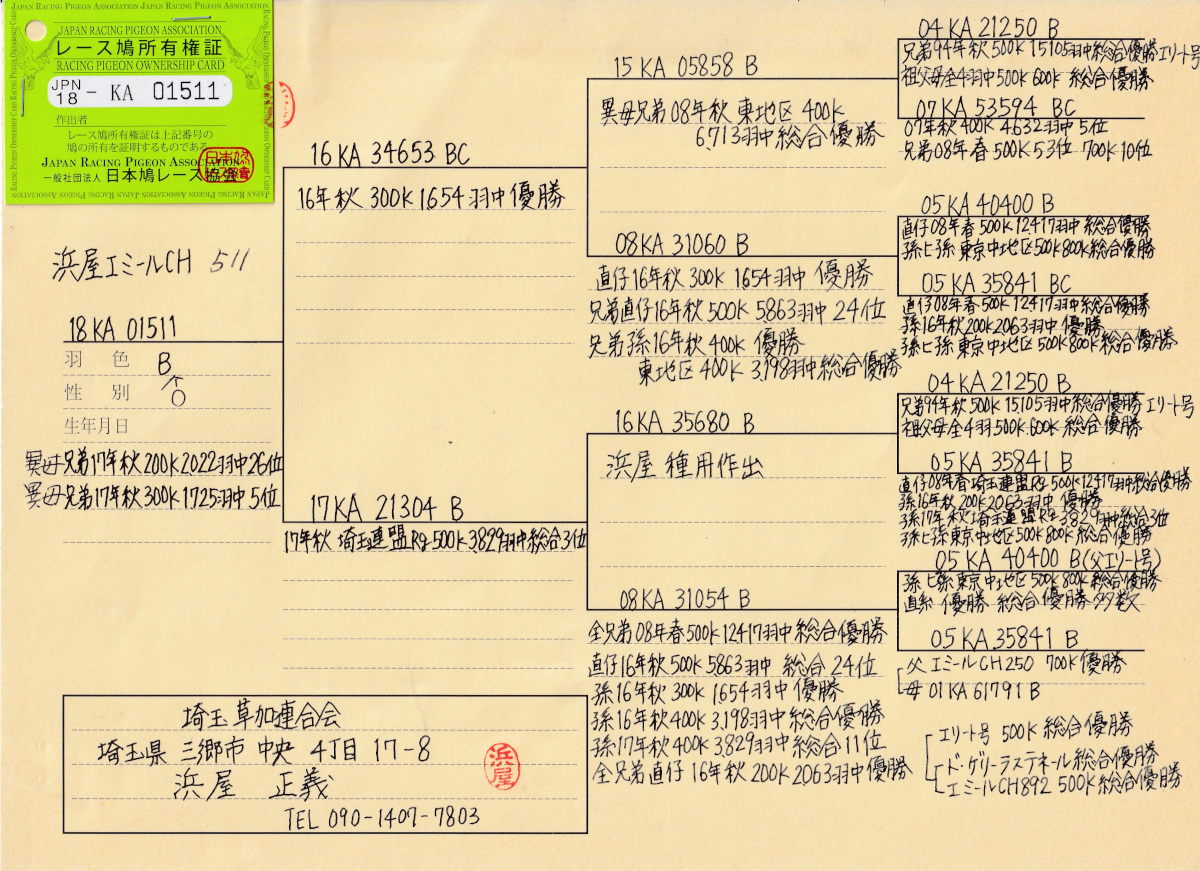 JAPAN RACING PIGEON ASSOCIATION JAPAN RACING PIGEON ASSOCIATION
JAPAN RACING PIGEON ASSOCIATION
レース鳩所有権証
RACING PIGEON OWNERSHIP CARD
JPN
18 - KA 01511
作出者
レース鳩所有権証は上記番号の
鳩の所有を証明するものである
JAPAN RACING PIGEON ASSOCIATION
一般社団法人 日本鳩レース協会
浜屋エミールCH 511
18 KA 01511
羽色 B
性別 ♂
生年月日
異母兄弟17年秋200K2022羽中26位
異母兄弟17年秋300K1725羽中5位
16 KA 34653 BC
16年秋 300K 1,654羽中優勝
17 KA 21304 B
17年秋 埼玉連盟Rg 500K 3,829羽中総合3位
15 KA 05858 B
異母兄弟08年秋 東地区 400K
6,713羽中総合優勝
08 KA 31060 B
直仔16年秋 300K 1654羽中 優勝
兄弟直仔16年秋 500K 5863羽中 24位
兄弟孫16年秋 400K 優勝
東地区 400K 3,198羽中総合優勝
16 KA 35680 B
浜屋 種用作出
08 KA 31054 B
全兄弟08年春500K12417羽中総合優勝
直仔16年秋500K5,863羽中 総合24位
孫16年秋 300K 1,654羽中 優勝
孫16年秋400K3,198羽中総合優勝
孫17年秋400K3,829羽中総合11位
全兄弟直仔 16年秋 200K 2,063羽中優勝
04 KA 21250 B
兄弟94年秋500K 15105羽中総合優勝エリート号
祖父母全4羽中500K600K 総合優勝
07 KA 53594 BC
07年秋400K 4632羽中 5位
兄弟08年春500K53位 700K10位
05 KA 40400 B
直仔08年春500K12417羽中総合優勝
孫ヒ孫 東京中地区500K800K総合優勝
05 KA 35841 BC
直仔08年春500K12417羽中総合優勝
孫16年秋200K2063羽中 優勝
孫ヒ孫 東京中地区500K800K総合優勝
04 KA 21250 B
兄弟94年秋500K 15,105羽中総合優勝エリート号
祖父母全4羽.500K.600K 総合優勝
05 KA 35841 B
直仔08年春埼玉連盟Rg500K12417羽中総合優勝
孫16年秋200K2063羽中 優勝
孫17年秋埼玉連盟Rg3829羽中総合3位
孫ヒ孫東京中地区500K800K 総合優勝
05 KA 40400 B(父エリート号)
孫ヒ孫東京中地区500K800K総合優勝
直系 優勝 総合優勝 多数
05 KA 35841 B
父 エミールCH250 700K優勝
母 01 KA 61791 B
エリート号 500K 総合優勝
ド・ゲリーラステネール総合優勝
エミールCH892 500K総合優勝
埼玉草加連合会
埼玉県 三郷市 中央 4丁目 17-8
浜屋 正義
浜屋
TEL 090-1407-7803